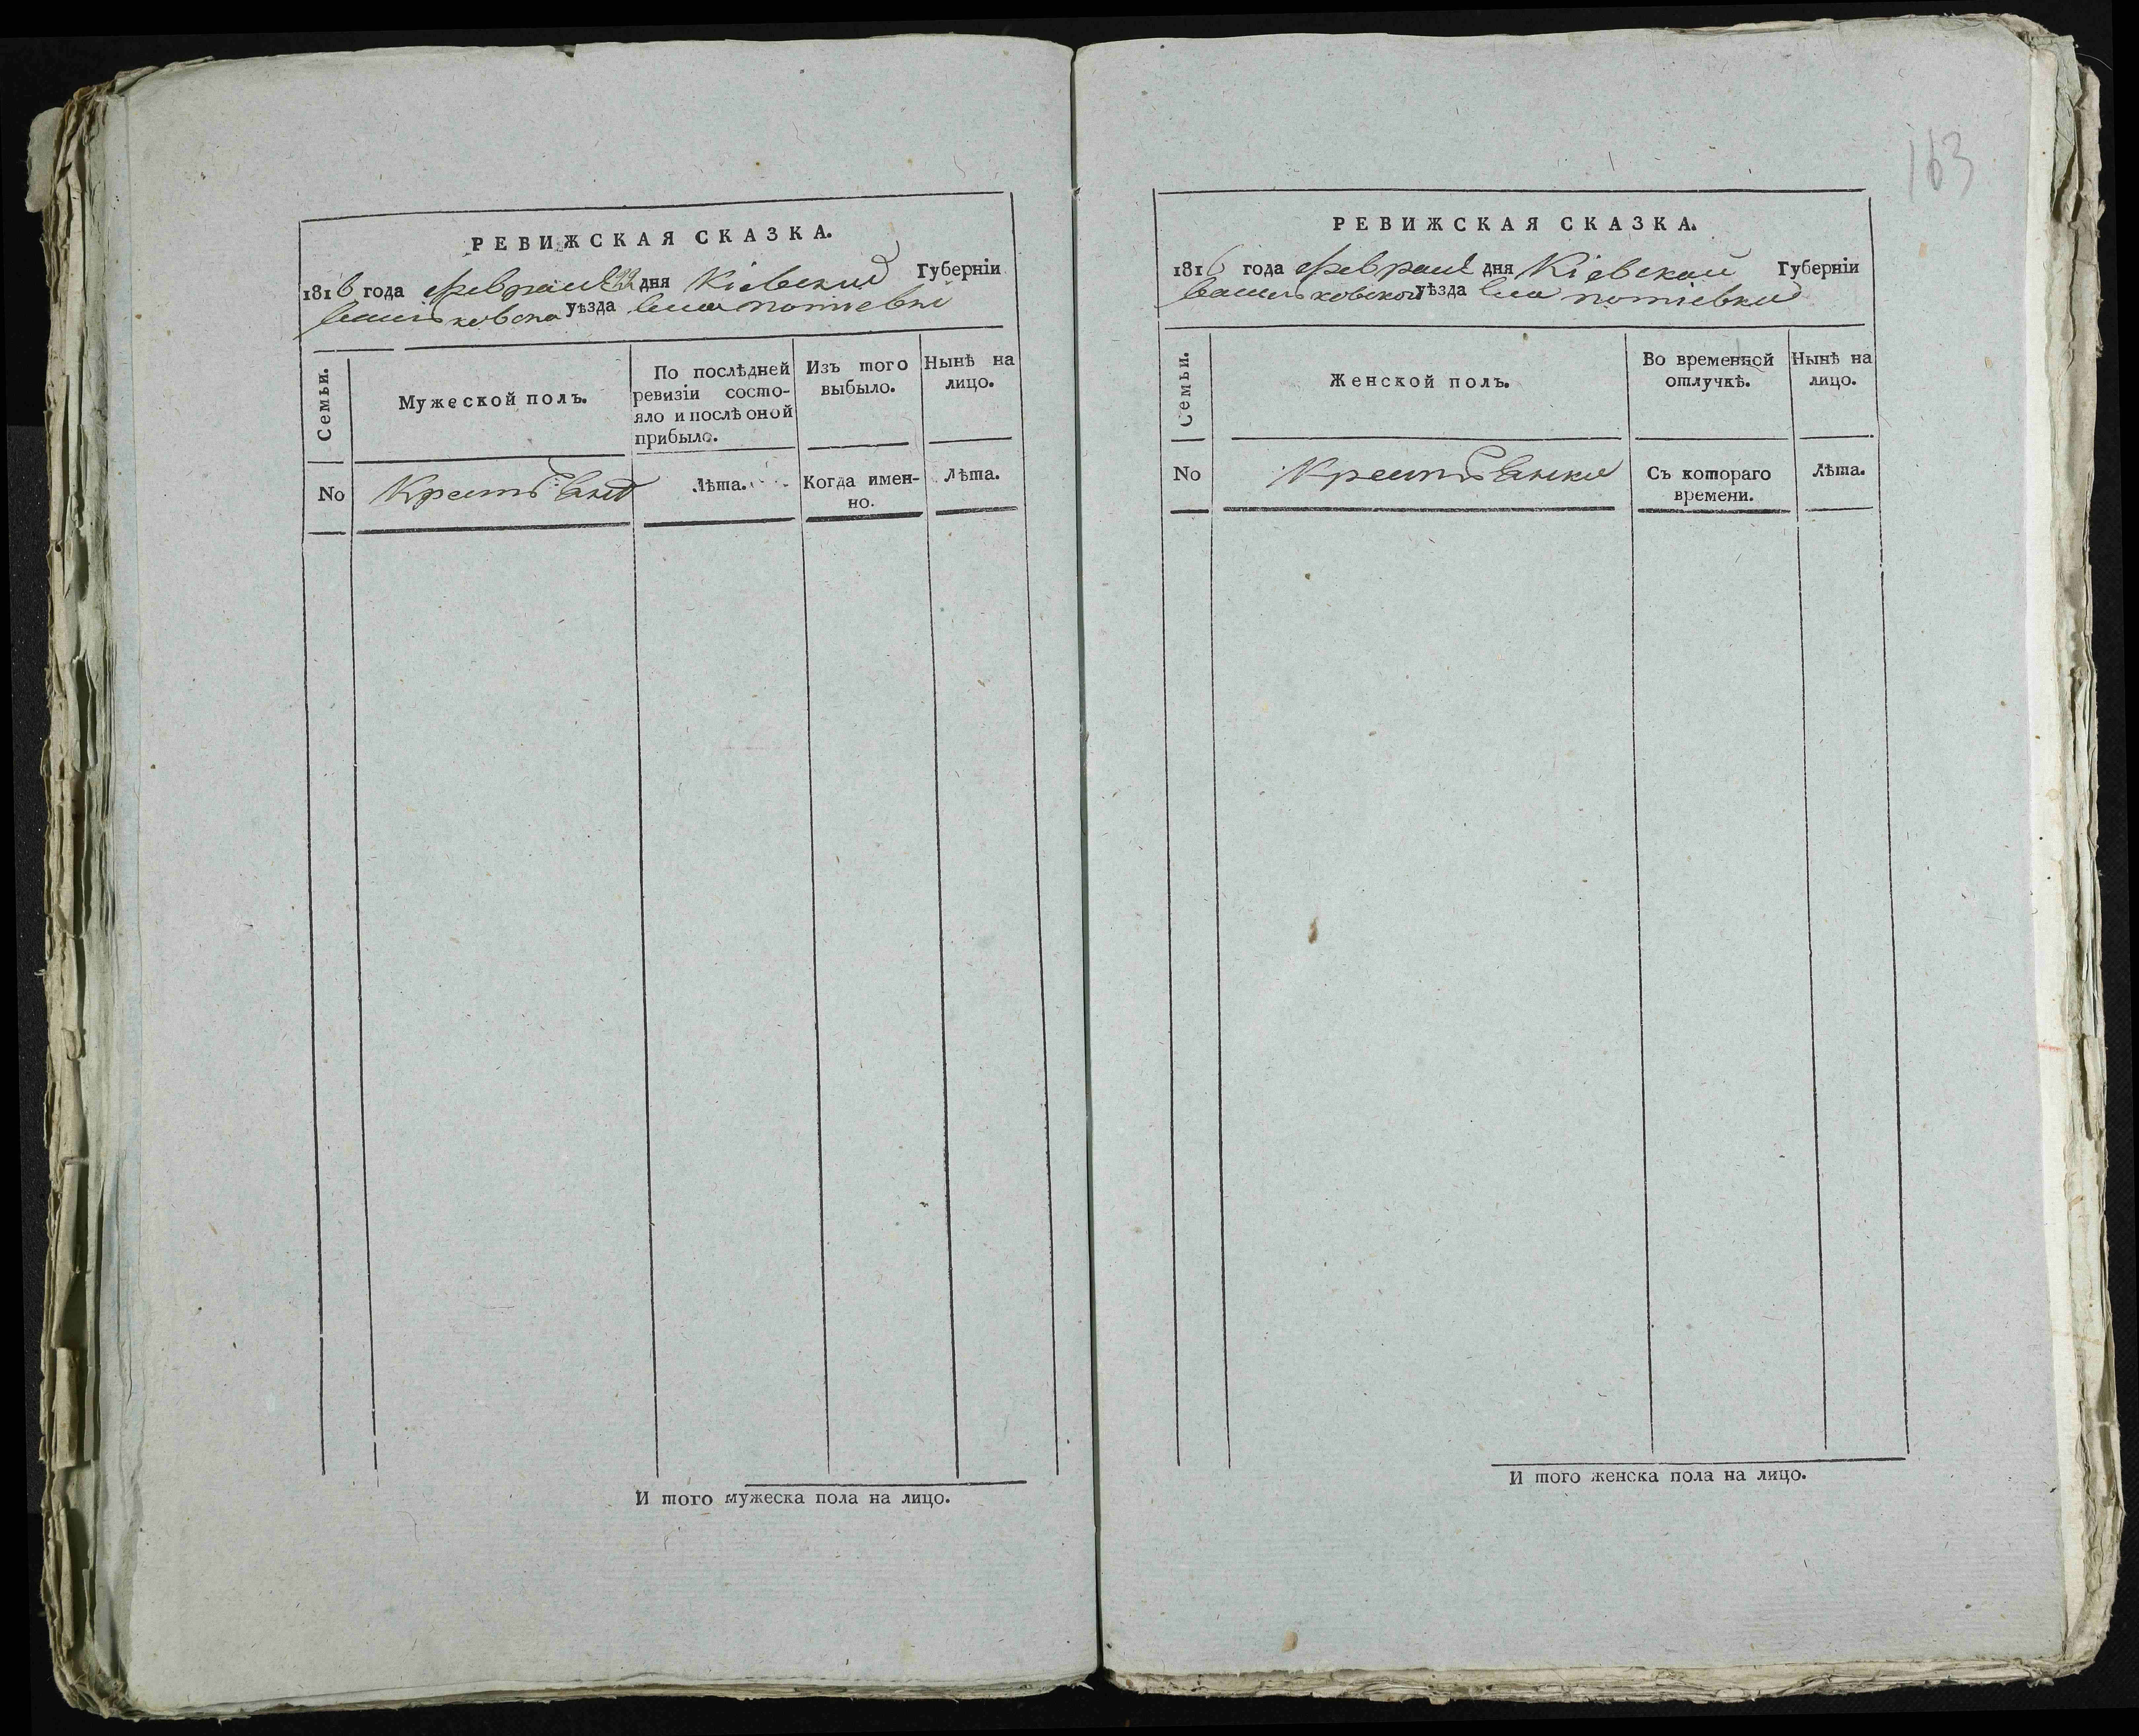 РЕВИЖСКАЯ СКАЗКА.
1816 года февраля 22 дня Кіевской Губерніи
васильковскаго уѣзда села потіевки
Семьи.
Мужеской полъ.
По послѣдней ревизіи состо-
яло и послѣ оной
прибыло.
Изъ того
выбыло.
Нынѣ на
лицо.
No
Крестьянъ
Лѣта.
Когда имен-
но.
Лѣта.
И того мужеска пола на лицо.
163
РЕВИЖСКАЯ СКАЗКА.
1816 года февраля дня Кіевской Губерніи
васильковского уѣзда села потіевки
Семьи.
Женской полъ.
Во временной
отлучкѣ.
Нынѣ на
лицо.
No
Крестьянки
Съ котораго
времени.
Лѣта.
И того женска пола на лицо.